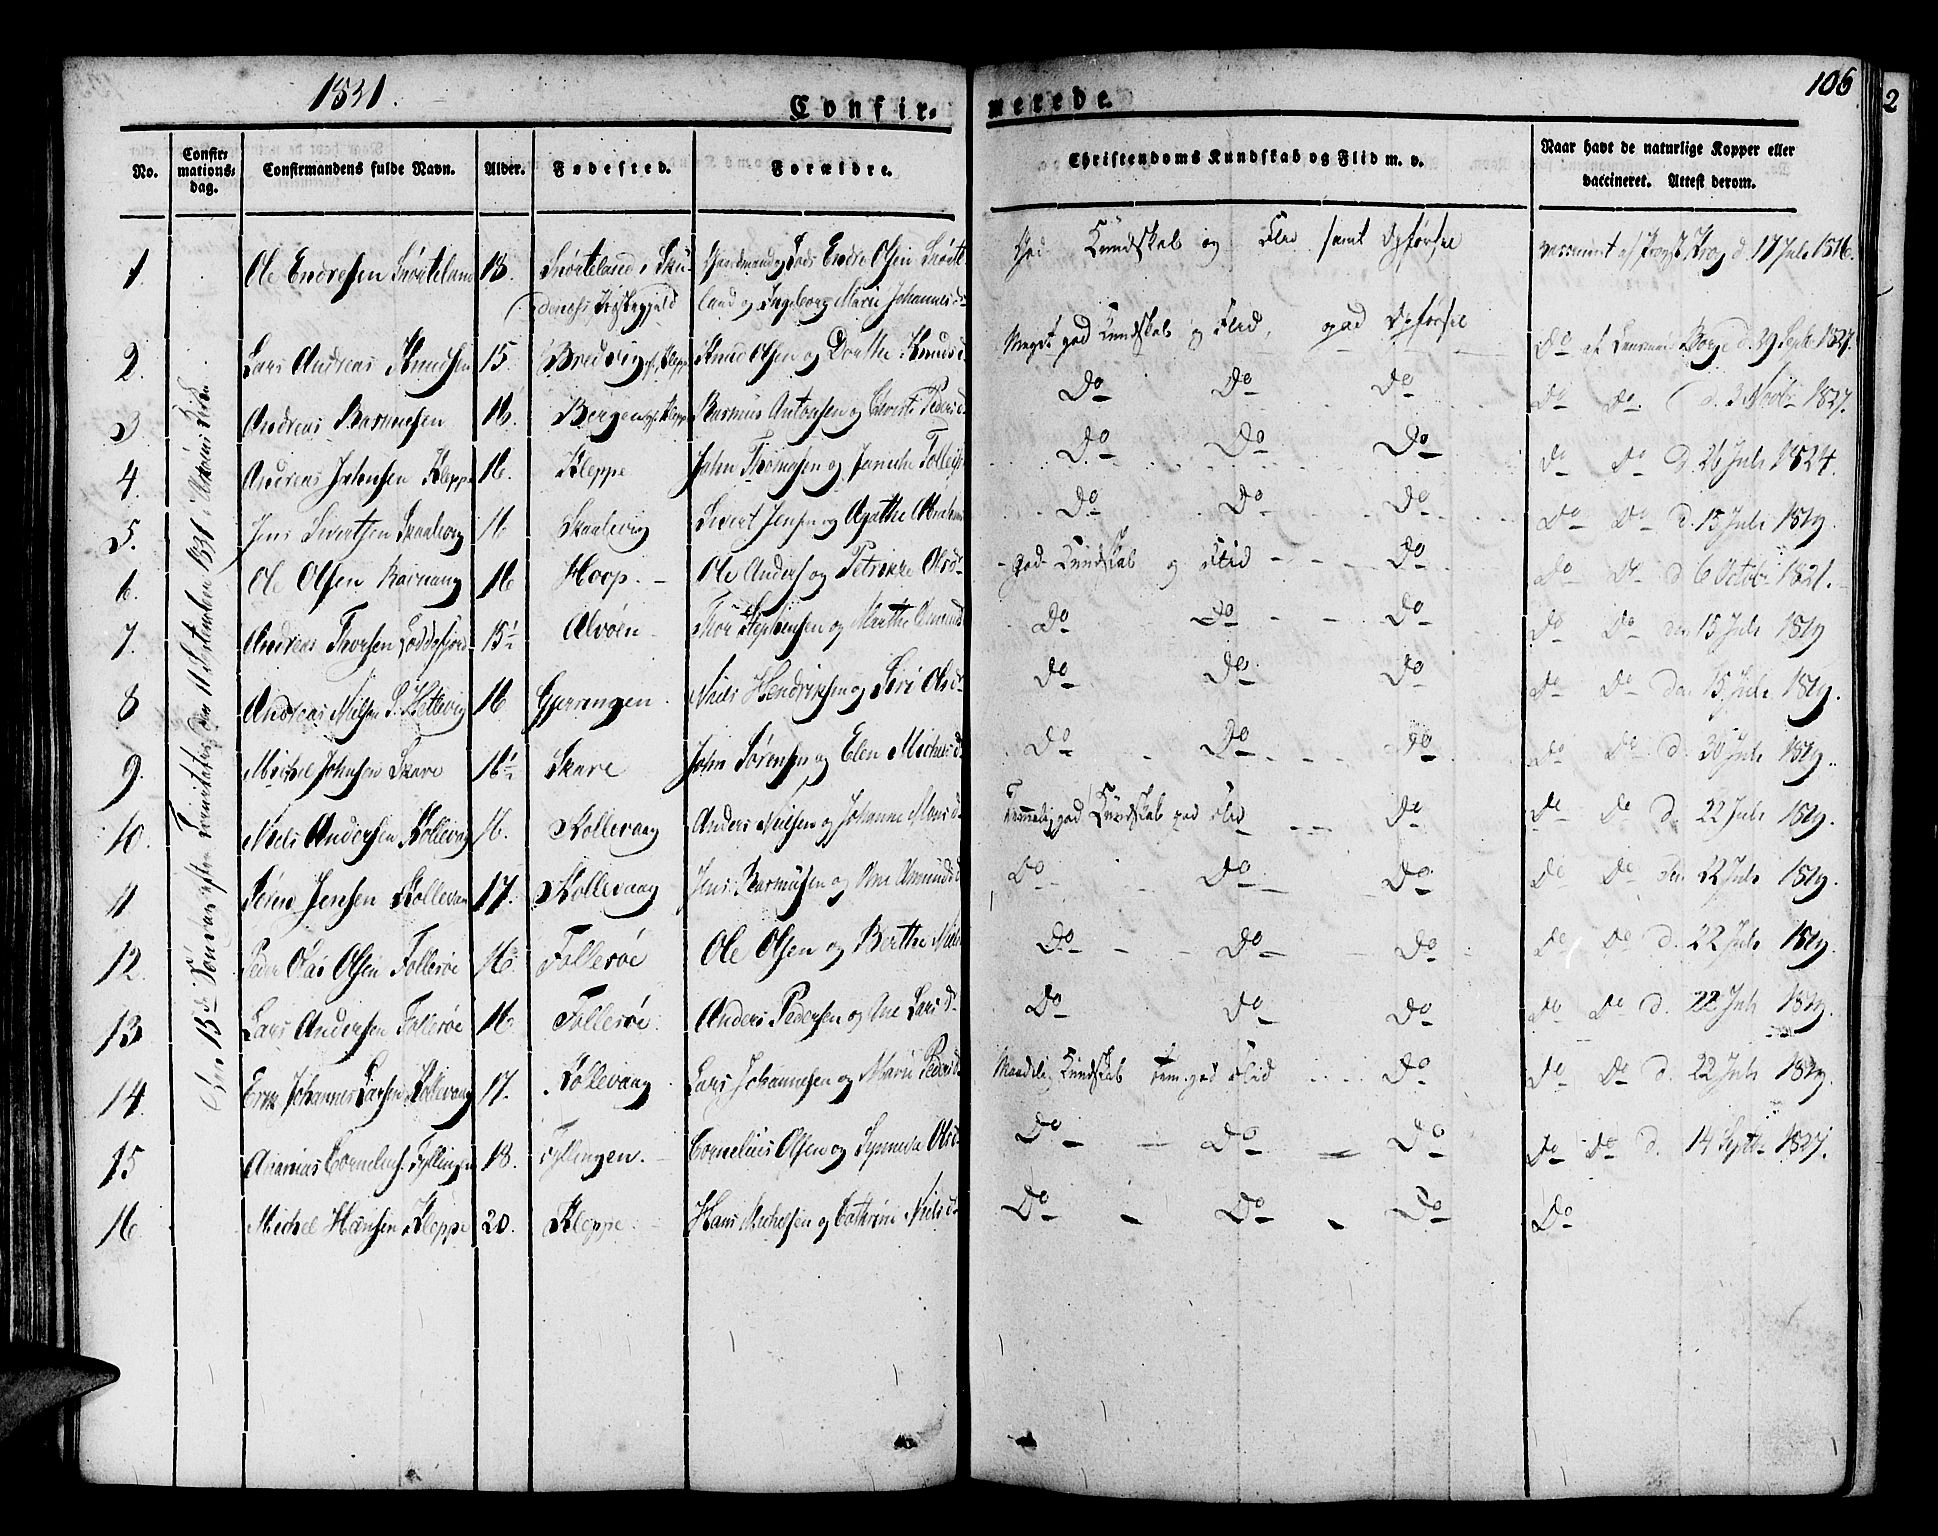 1831.
Confir-
merede.
106
2
No.
Confir-
mations-
dag.
Confirmandens fulde Navn.
Alder.
Fødested.
Forældre.
Christendoms Kundskab og Flid m. v.
Naar havt de naturlige Kopper eller
vaccineret. Attest derom.
Den 13de Søndag efter Trinitatis den 11 September 1831
1. Ole Endresen Snørteland 18. Snørteland, Sku- Endre Olsen Snørt- God Kundskab og Flid samt Opførsel d. 17 Juli 1816.
denæs Præstegjeld land og Ingeborg Marie Johannesd
2. Lars Andreas Knudsen 15. Bredvig Knud Olsen og Dorthe Knudsd Meget god Kundskab og Flid, god Opførsel Do af 29 Septb 1827.
3 Andreas Rasmusen 16. Bergen Rasmus Antonsen og Pedersd Do Do Do Do Do d. 3 Novbr 1827.
4. Andreas Johnsen Kleppe 16. Kleppe John Thomasen og Do Do Do Do Do d. 26 Juli 1824.
5. Jens Sivertsen Skaalevig 16 Skaalevig Sivert Jensen og Agathe Do Do Do Do Do d. 15 Juli 1819.
6. Ole Olsen 16 Hoop. Ole Anders og Petrikke Olsd god Kundskab og Flid Do Do Do d 6 Octob 1821.
7. Andreas Thorsen Loddefjord 15½ Alvøen Thor Stephensen og Marthe Do Do Do Do Do den 15 Juli 1819
8 Andreas Nilsen Hettevig 16 Gjerringen Niels Hendriksen og Siri Olsd Do Do Do Do Do den 15 Juli 1819.
9. Michel Johnsen Skare 16½ Skare John Sørensen og Elen Michelsd Do Do Do Do Do d. 30 Juli 1819.
10. Niels Andersen Kollevaag 16. Kollevaag Anders Nilsen og Johanne Monsd Temmelig god Kundskab god Flid Do Do Do d. 22 Juli 1819.
11 Jensen Kollevaag 17. Kollevaag Jens Rasmusen og Ane Amundsd Do Do Do Do Do den 22 Juli 1819.
12. Peder Olai Olsen Follesøe 16. Follesøe Ole Olsen og Berthe Do Do Do Do Do d. 22 Juli 1819.
13 Lars Andersen Follesøe 16 Follesøe. Anders Pedersen og Ane Larsd Do Do Do Do Do d. 22 Juli 1819.
14. Johannes Larsen Kollevaag 17. Kollevaag Lars Johannesen og Marie Pedersd Maadelig Kundskab tem. god Flid Do Do Do d. 22 Juli 1819.
15 Ananias Fyllingen 18. Fyllingen. Cornelius Olsen og Synneva Olsd Do Do Do Do Do d. 14 Septb 1827.
16. Michel Hansen Kleppe 20. Kleppe Hans Michelsen og Cathrine Nielsd Do Do Do Do